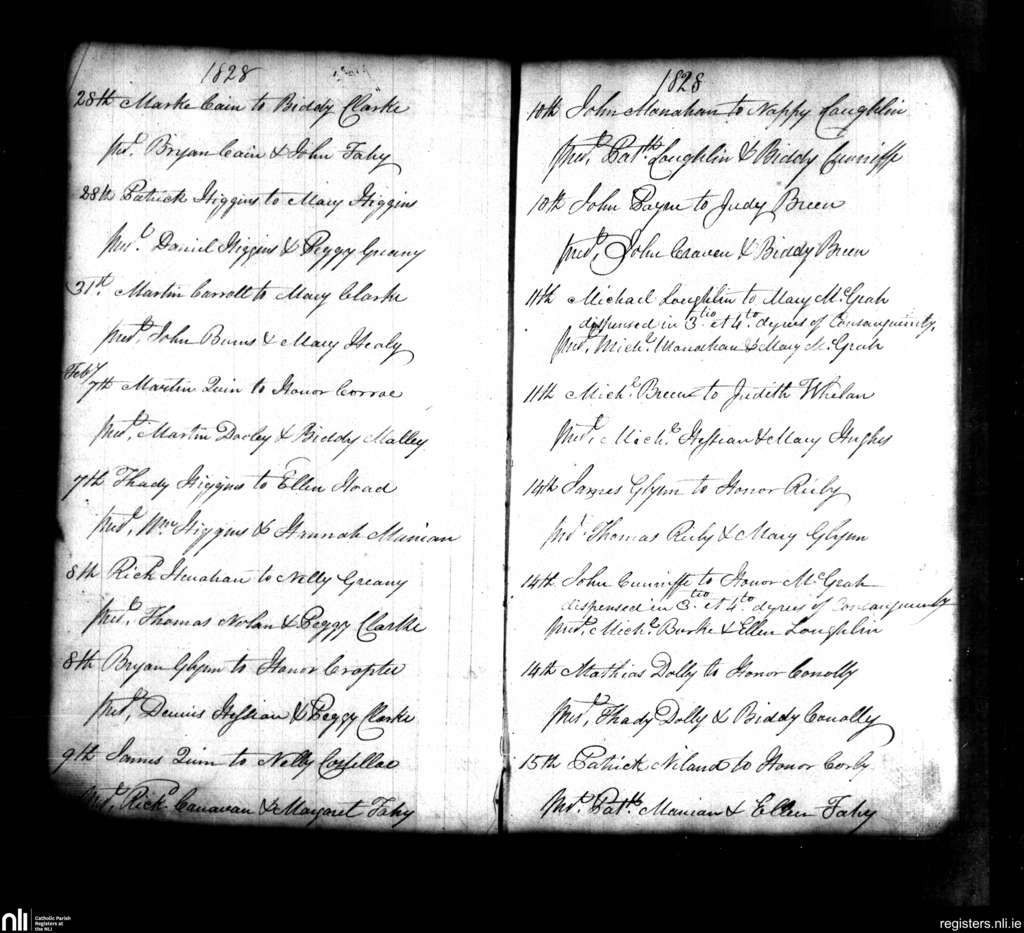 1828
28th Marke Cain to Biddy Clarke
Prest. Bryan Cain & John Fahy
28th Patrick Higgins to Mary Higgins
Prest. Daniel Higgins & Peggy Greany
31st. Martin Carroll to Mary Clarke
Prest. John Burns & Mary Healy
Feby
7th Martin Quin to Honor Corroe
Prest, Martin Dooley & Biddy Malley
7th Thady Higgins to Ellen Hoad
Prest, Wm Higgins & Hannah Manian
8th Rick Henahan to Nelly Greany
Prest, Thomas Nolan & Peggy Clarke
8th Bryan Glynn to Honor
Prest, Dennis Hession & Peggy Clarke
9th James Quin to Nelly
Prest, Richd Canavan & Margaret Fahy
1828
10th John Manahan to Nappy Loughlin
Prest, Patk. Loughlin & Biddy Cunniffe
10th John Payne to Judy Breen
Prest, John Craven & Biddy Breen
11th Michael Loughlin to Mary McGrah
dispensed in 3tio et 4to degrees of Consanguinity,
Prest, Michl. Manahan & Mary McGrah
11th Michl. Breen to Judith Whelan
Prest, Michl. Hession & Mary Hughes
14th James Glynn to Honor Ruby
Prest Thomas Ruby & Mary Glynn
14th John Cunniffe to Honor McGrah
dispensed in 3tio et 4to degrees of Consanguinity
Prest, Michl. Burke & Ellen Loughlin
14th Mathias Dolly to Honor Conolly
Prest, Thady Dolly & Biddy Conolly
15th Patrick Niland to Honor Corby
Prest. Patk. Manian & Ellen Fahy
nli
Catholic Parish
Registers at
the NLI
registers.nli.ie